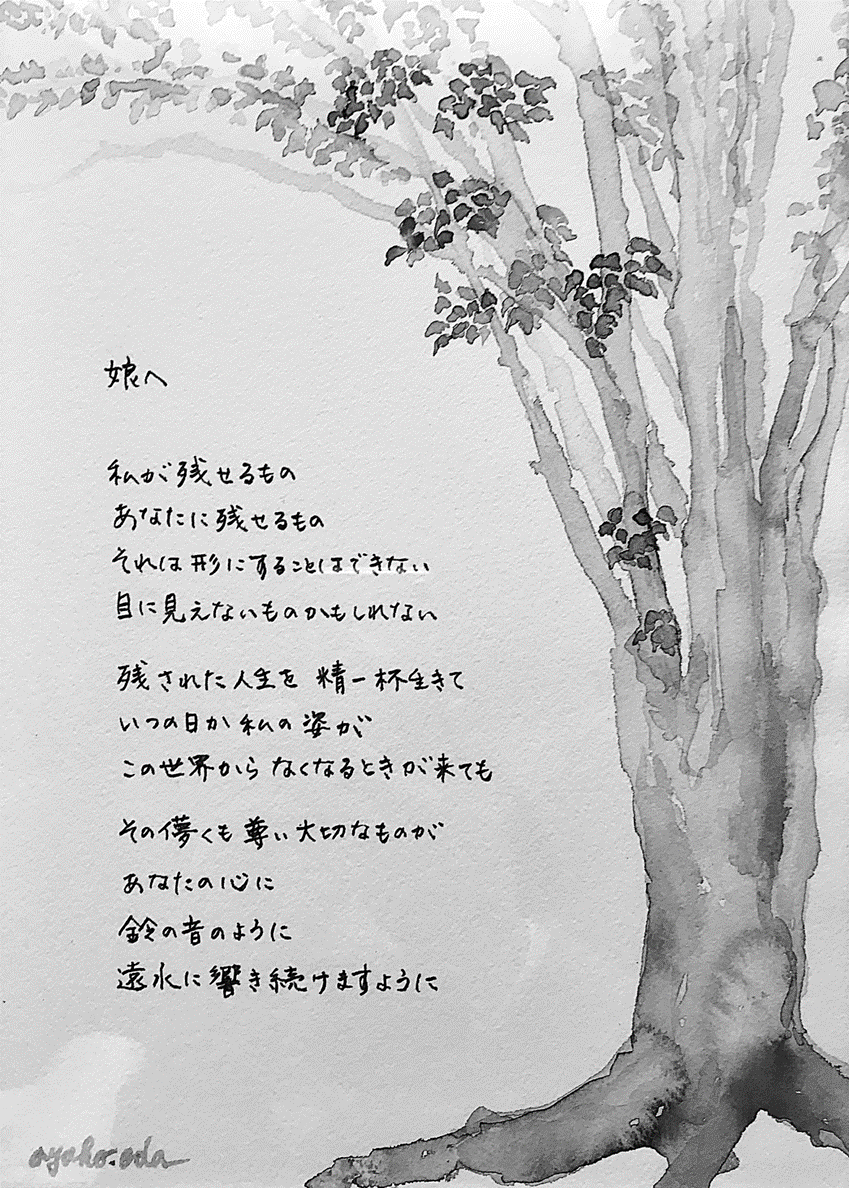 娘へ
私が残せるもの
あなたに残せるもの
それは形にすることはできない
目に見えないものかもしれない
残された人生を 精一杯生きて
いつの日か 私の姿が
この世界から なくなるときが来ても
その儚くも 尊い大切なものが
あなたの心に
鈴の音のように
遠永に響き続けますように
ayako.oda